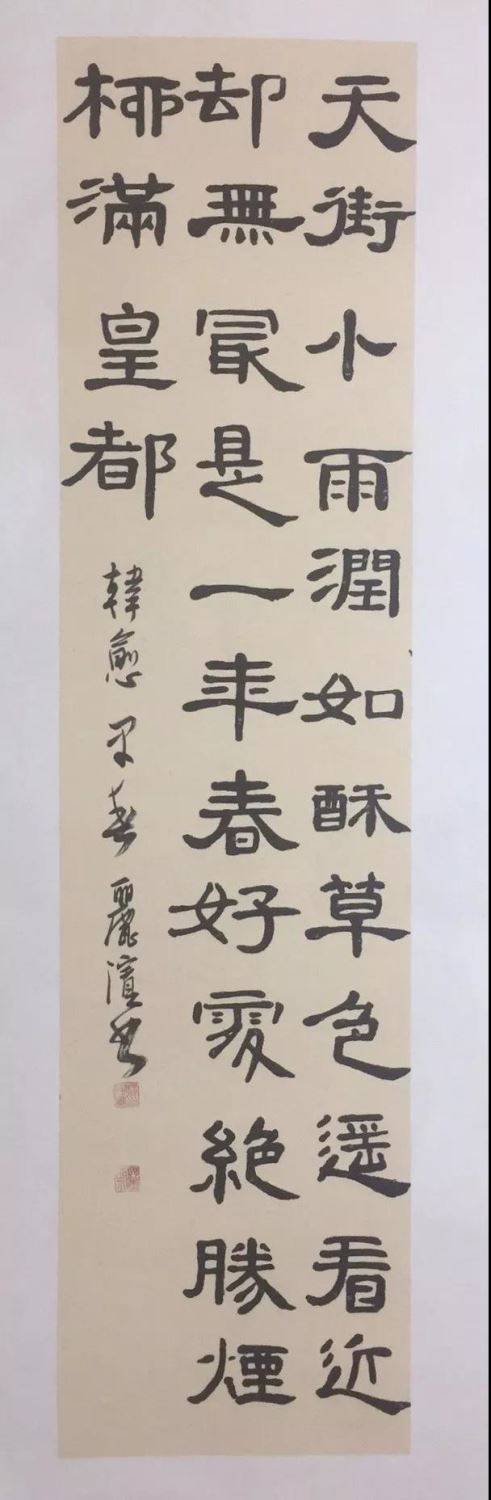 天街小雨潤如酥草色遥看近
却無冣是一年春好處絶勝煙
桺滿皇都
韓愈早春麗濱书